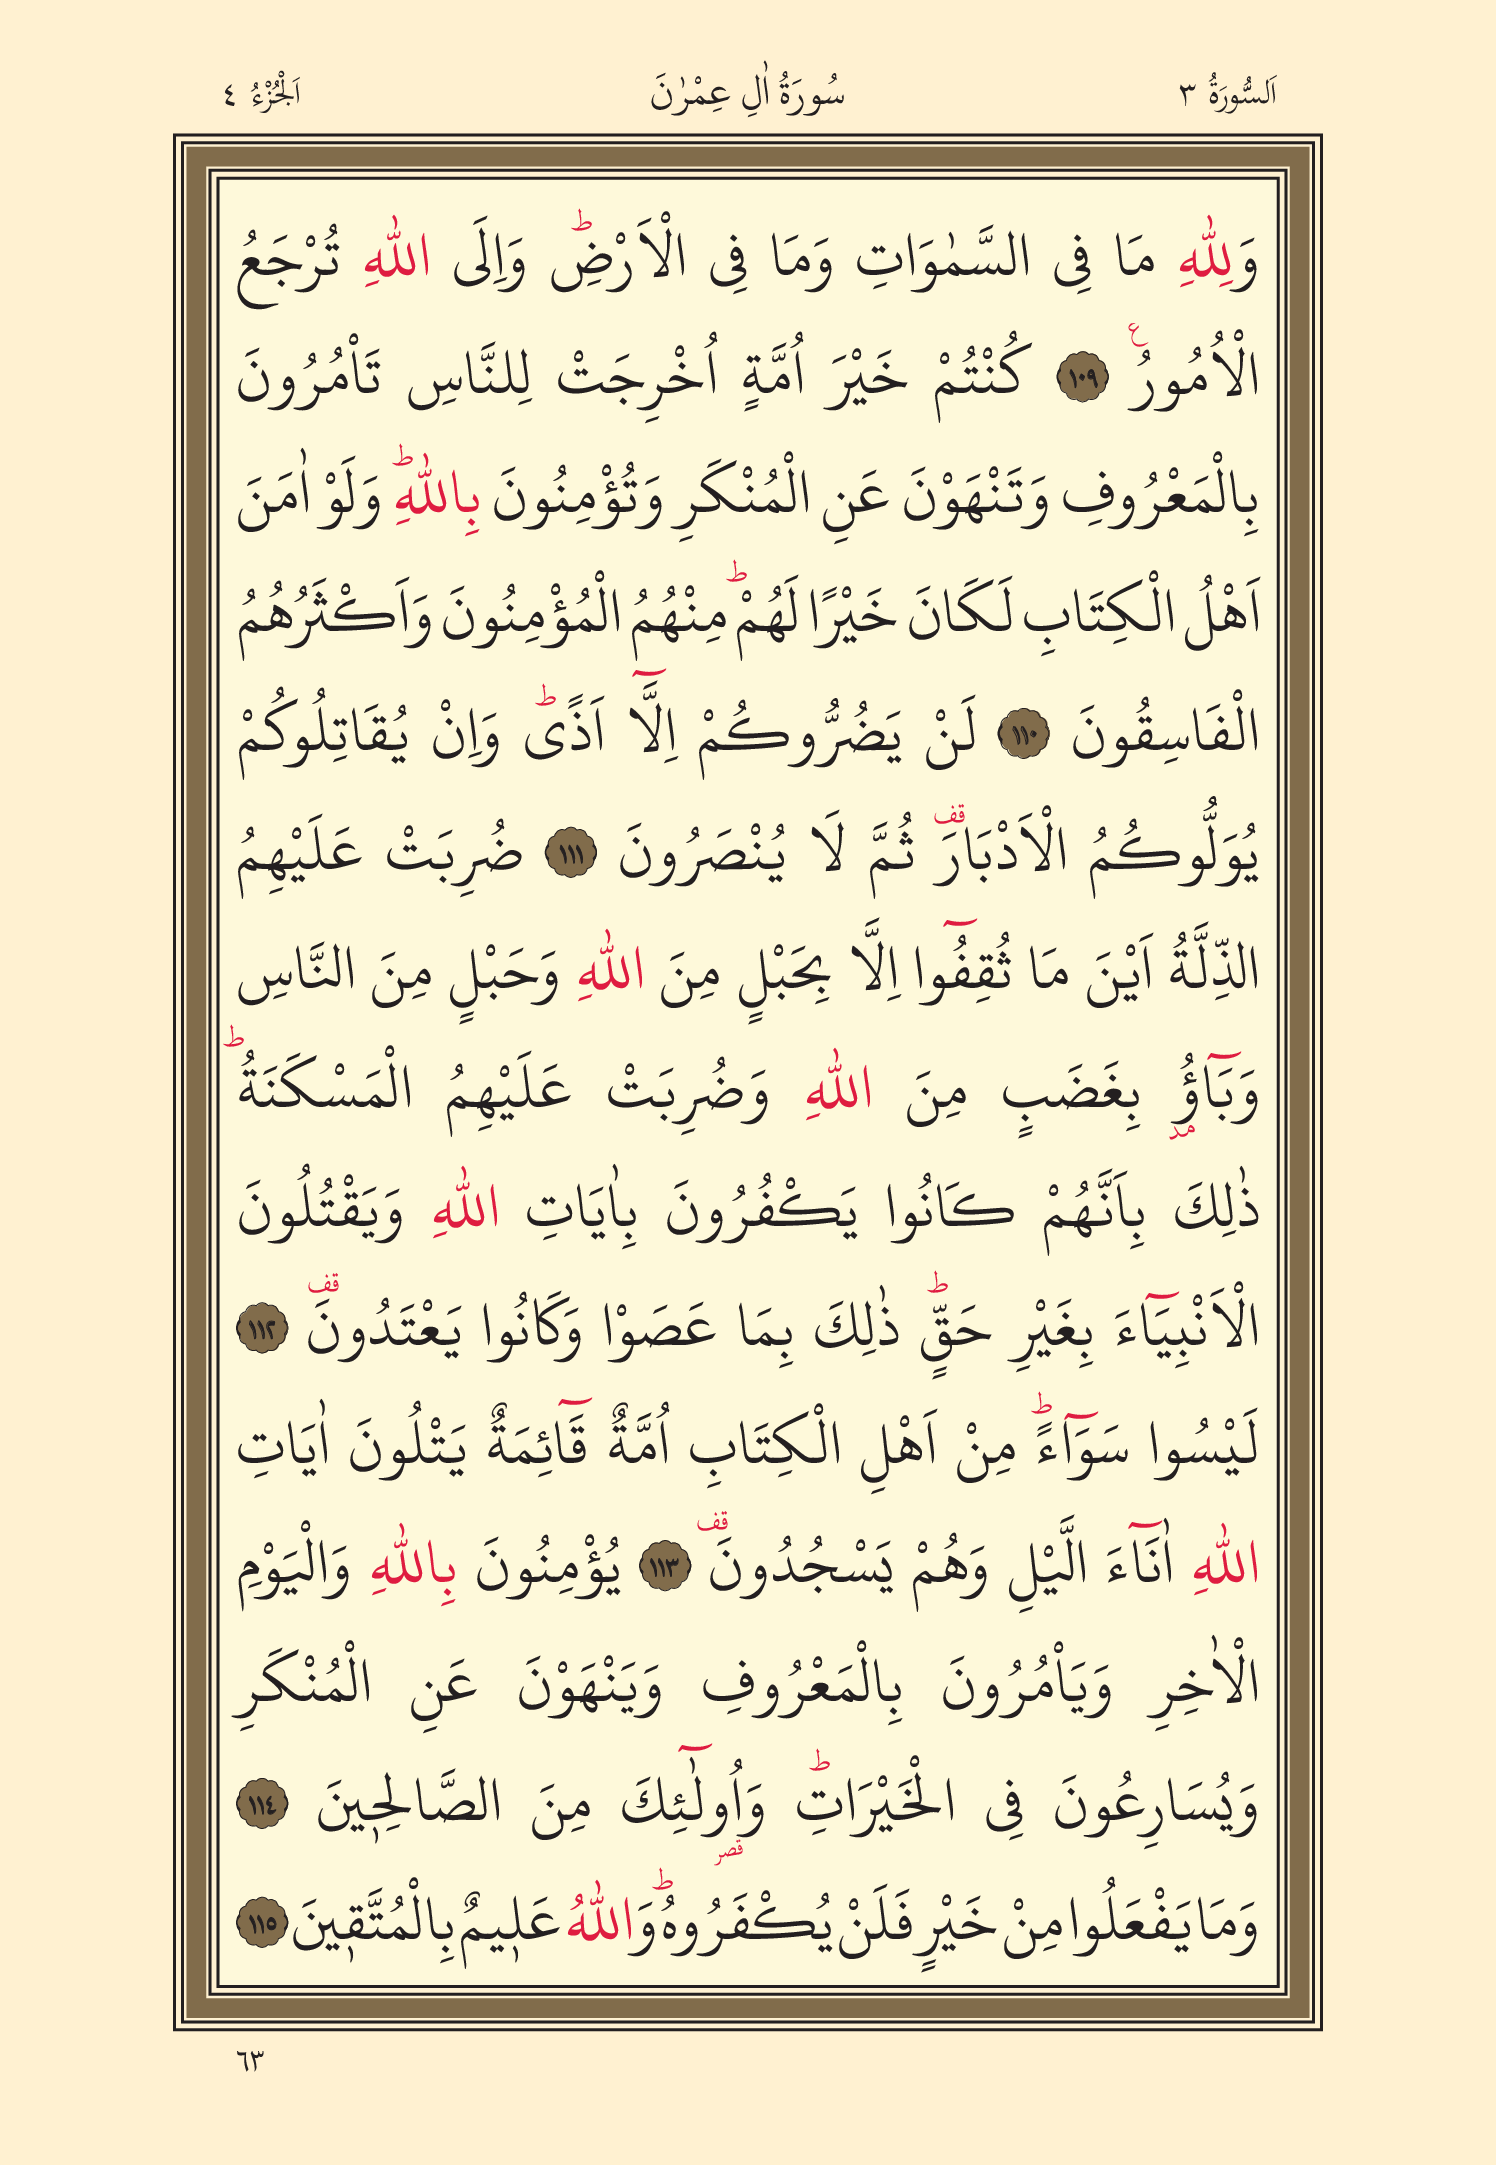 اَلسُّورَةُ ٣ سُورَةُ اٰلِ عِمْرٰنَ اَلْجُزْءُ ٤
وَلِلّٰهِ مَا فِى السَّمٰوَاتِ وَمَا فِى الْاَرْضِۜ وَاِلَى اللّٰهِ تُرْجَعُ
الْاُمُورُ ع ١٠٩ كُنْتُمْ خَيْرَ اُمَّةٍ اُخْرِجَتْ لِلنَّاسِ تَاْمُرُونَ
بِالْمَعْرُوفِ وَتَنْهَوْنَ عَنِ الْمُنْكَرِ وَتُؤْمِنُونَ بِاللّٰهِۜ وَلَوْ اٰمَنَ
اَهْلُ الْكِتَابِ لَكَانَ خَيْرًا لَهُمْۜ مِنْهُمُ الْمُؤْمِنُونَ وَاَكْثَرُهُمُ
الْفَاسِقُونَ ١١٠ لَنْ يَضُرُّوكُمْ اِلَّٓا اَذًىۜ وَاِنْ يُقَاتِلُوكُمْ
يُوَلُّوكُمُ الْاَدْبَارَ قف ثُمَّ لَا يُنْصَرُونَ ١١١ ضُرِبَتْ عَلَيْهِمُ
الذِّلَّةُ اَيْنَ مَا ثُقِفُٓوا اِلَّا بِحَبْلٍ مِنَ اللّٰهِ وَحَبْلٍ مِنَ النَّاسِ
وَبَٓاؤُ مد بِغَضَبٍ مِنَ اللّٰهِ وَضُرِبَتْ عَلَيْهِمُ الْمَسْكَنَةُۜ
ذٰلِكَ بِاَنَّهُمْ كَانُوا يَكْفُرُونَ بِاٰيَاتِ اللّٰهِ وَيَقْتُلُونَ
الْاَنْبِيَٓاءَ بِغَيْرِ حَقٍّۜ ذٰلِكَ بِمَا عَصَوْا وَكَانُوا يَعْتَدُونَ قف ١١٢
لَيْسُوا سَوَٓاءًۜ مِنْ اَهْلِ الْكِتَابِ اُمَّةٌ قَٓائِمَةٌ يَتْلُونَ اٰيَاتِ
اللّٰهِ اٰنَٓاءَ الَّيْلِ وَهُمْ يَسْجُدُونَ قف ١١٣ يُؤْمِنُونَ بِاللّٰهِ وَالْيَوْمِ
الْاٰخِرِ وَيَاْمُرُونَ بِالْمَعْرُوفِ وَيَنْهَوْنَ عَنِ الْمُنْكَرِ
وَيُسَارِعُونَ فِى الْخَيْرَاتِۜ وَاُو۬لٰٓئِكَ قصر مِنَ الصَّالِحٖينَ ١١٤
وَمَا يَفْعَلُوا مِنْ خَيْرٍ فَلَنْ يُكْفَرُوهُۜ وَاللّٰهُ عَلٖيمٌ بِالْمُتَّقٖينَ ١١٥
٦٣